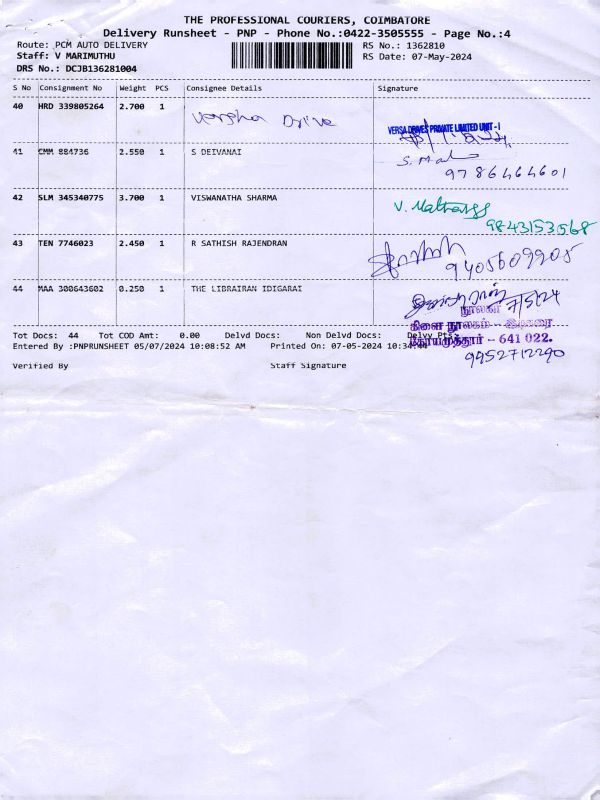 THE PROFESSIONAL COURIERS, COIMBATORE
Delivery Runsheet - PNP - Phone No.:0422-3505555 - Page No.:4
Route: PCM AUTO DELIVERY RS No.: 1362810
Staff: V MARIMUTHU RS Date: 07-May-2024
DRS No.: DCJB136281004
S No Consignment No Weight PCS Consignee Details Signature
40 HRD 339805264 2.700 1 Versha Drive
VERSA DRIVES PRIVATE LIMITED UNIT - I
41 CMM 884736 2.550 1 S DEIVANAI
9786464601
42 SLM 345340775 3.700 1 VISWANATHA SHARMA
9843153568
43 TEN 7746023 2.450 1 R SATHISH RAJENDRAN
9405609205
44 MAA 300643602 0.250 1 THE LIBRAIRAN IDIGARAI
7/5/24
கிளை நூலகம் - இடிகரை
கோயமுத்தூர் - 641 022.
9952712290
Tot Docs: 44 Tot COD Amt: 0.00 Delvd Docs: Non Delvd Docs: Delvy Pts:
Entered By :PNPRUNSHEET 05/07/2024 10:08:52 AM Printed On: 07-05-2024 10:34:44
Verified By Staff Signature